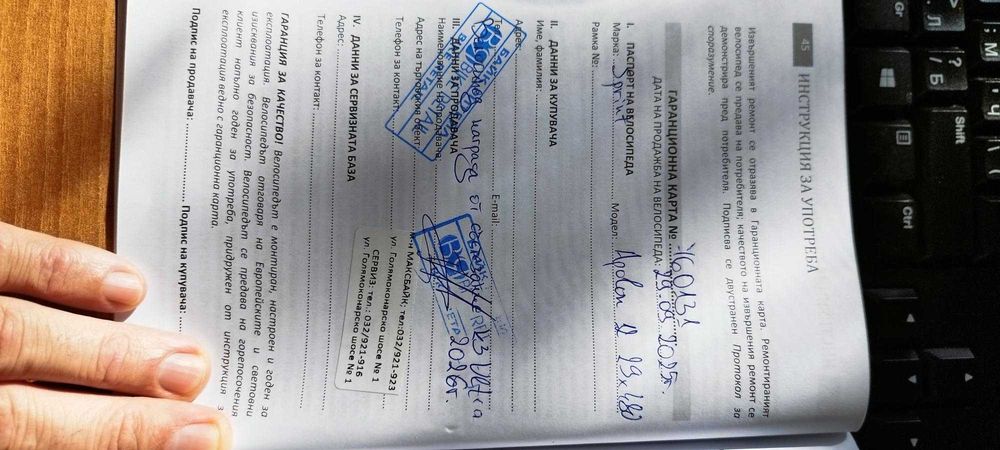 45 ИНСТРУКЦИЯ ЗА УПОТРЕБА
Извършеният ремонт се отразява в Гаранционната карта. Ремонтираният
велосипед се предава на потребителя; качеството на извършения ремонт се
демонстрира пред потребителя. Подписва се двустранен Протокол за
споразумение.
ГАРАНЦИОННА КАРТА №
ДАТА НА ПРОДАЖБА НА ВЕЛОСИПЕДА: 29.09.2025г.
I. ПАСПОРТ НА ВЕЛОСИПЕДА
Марка: Sprint Модел: Apolon 29x480
Рамка №:
II. ДАННИ ЗА КУПУВАЧА
Име, фамилия:
Адрес:
E-mail:
награда от
III. ДАННИ ЗА ПРОДАВАЧА 2026г.
Наименование продавача
Адрес на търговския обект МАКСБАЙК: тел:032/921-923
Телефон за контакт: ул. Голямоконарско шосе № 1
СЕРВИЗ: тел.: 032/921-916
ул. Голямоконарско шосе № 1
IV. ДАННИ ЗА СЕРВИЗНАТА БАЗА
Адрес:
Телефон за контакт:
ГАРАНЦИЯ ЗА КАЧЕСТВО! Велосипедът е монтиран, настроен и годен за
експлоатация. Велосипедът отговаря на Европейските и световни
изисквания за безопасност. Велосипедът се предава на горепосочения
клиент напълно годен за употреба, придружен от инструкция з
експлоатация ведно с гаранционна карта.
Подпис на продавача: Подпис на купувача:
Shift
Ctrl
Gr